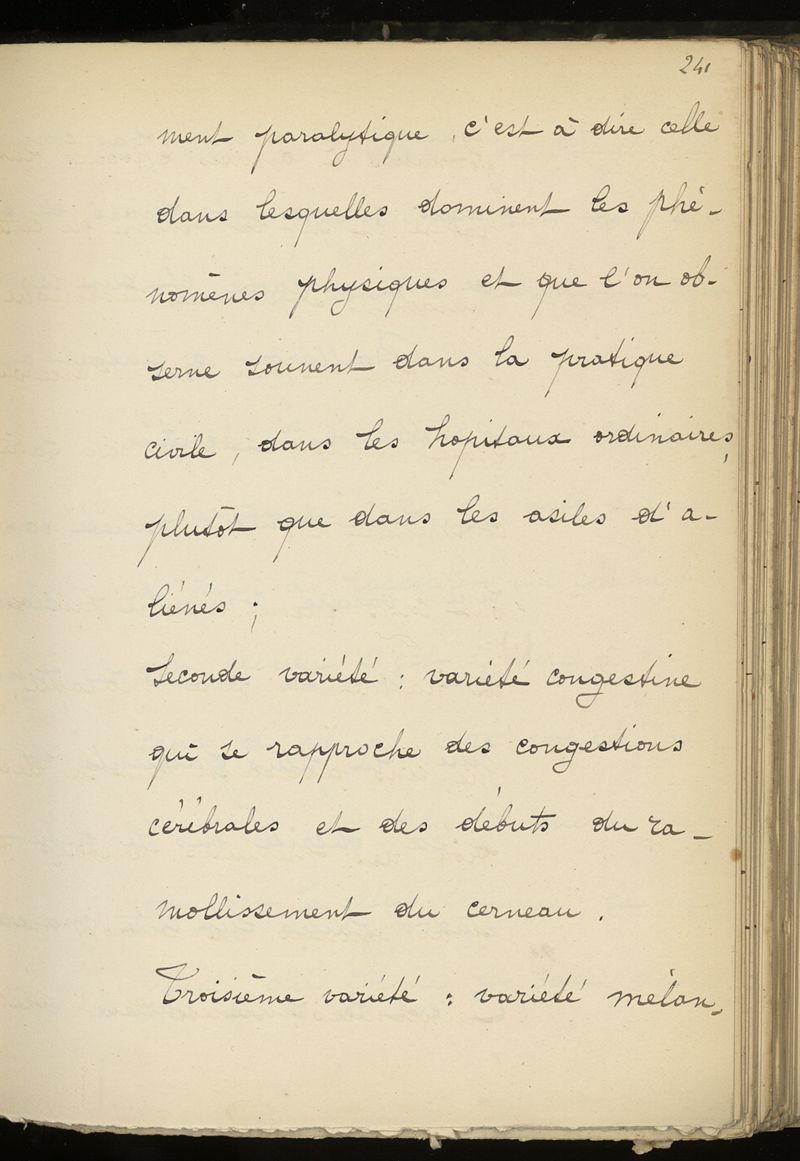 241
ment paralytique, c'est à dire celle
dans lesquelles dominent les phé-
nomènes physiques et que l'on ob-
serve souvent dans la pratique
civile, dans les hopitaux ordinaires,
plutôt que dans les asiles d'a-
liénés ;
Seconde variété : variété congestive
qui se rapproche des congestions
cérébrales et des débuts du ra-
mollissement du cerveau.
Troisième variété : variété mélan-